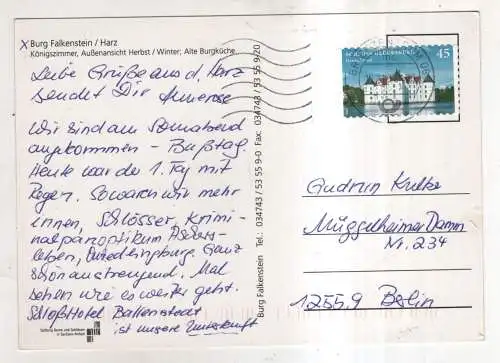 x Burg Falkenstein / Harz
Königszimmer, Außenansicht Herbst / Winter; Alte Burgküche
Liebe Grüße aus d. Harz
sendet Dir Annerose
Wir sind am Sonnabend
angekommen - Bußtag.
Heute war der 1. Tag mit
Regen. So waren wir mehr
innen, Schlösser, Krimi-
nalpanoptikum Aschers-
leben, Quedlinburg. Ganz
schön anstrengend. Mal
sehen wie es weiter geht.
Schloßhotel Ballenstedt
ist unsere Unterkunft
Burg Falkenstein Tel.: 034743 / 53 55 9-0 Fax: 034743 / 53 55 9/20
45
Gudrun Kulke
Müggelheimer Damm
Nr. 234
12559 Berlin